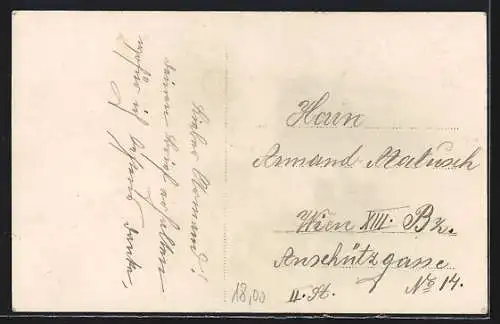 Lieber Armand!
Deinen Brief erhalten
wofür ich bestens danke,
Herrn
Armand Matusch
Wien XIII. Bz.
Anschützgasse
No 14.
II. St.
18,00